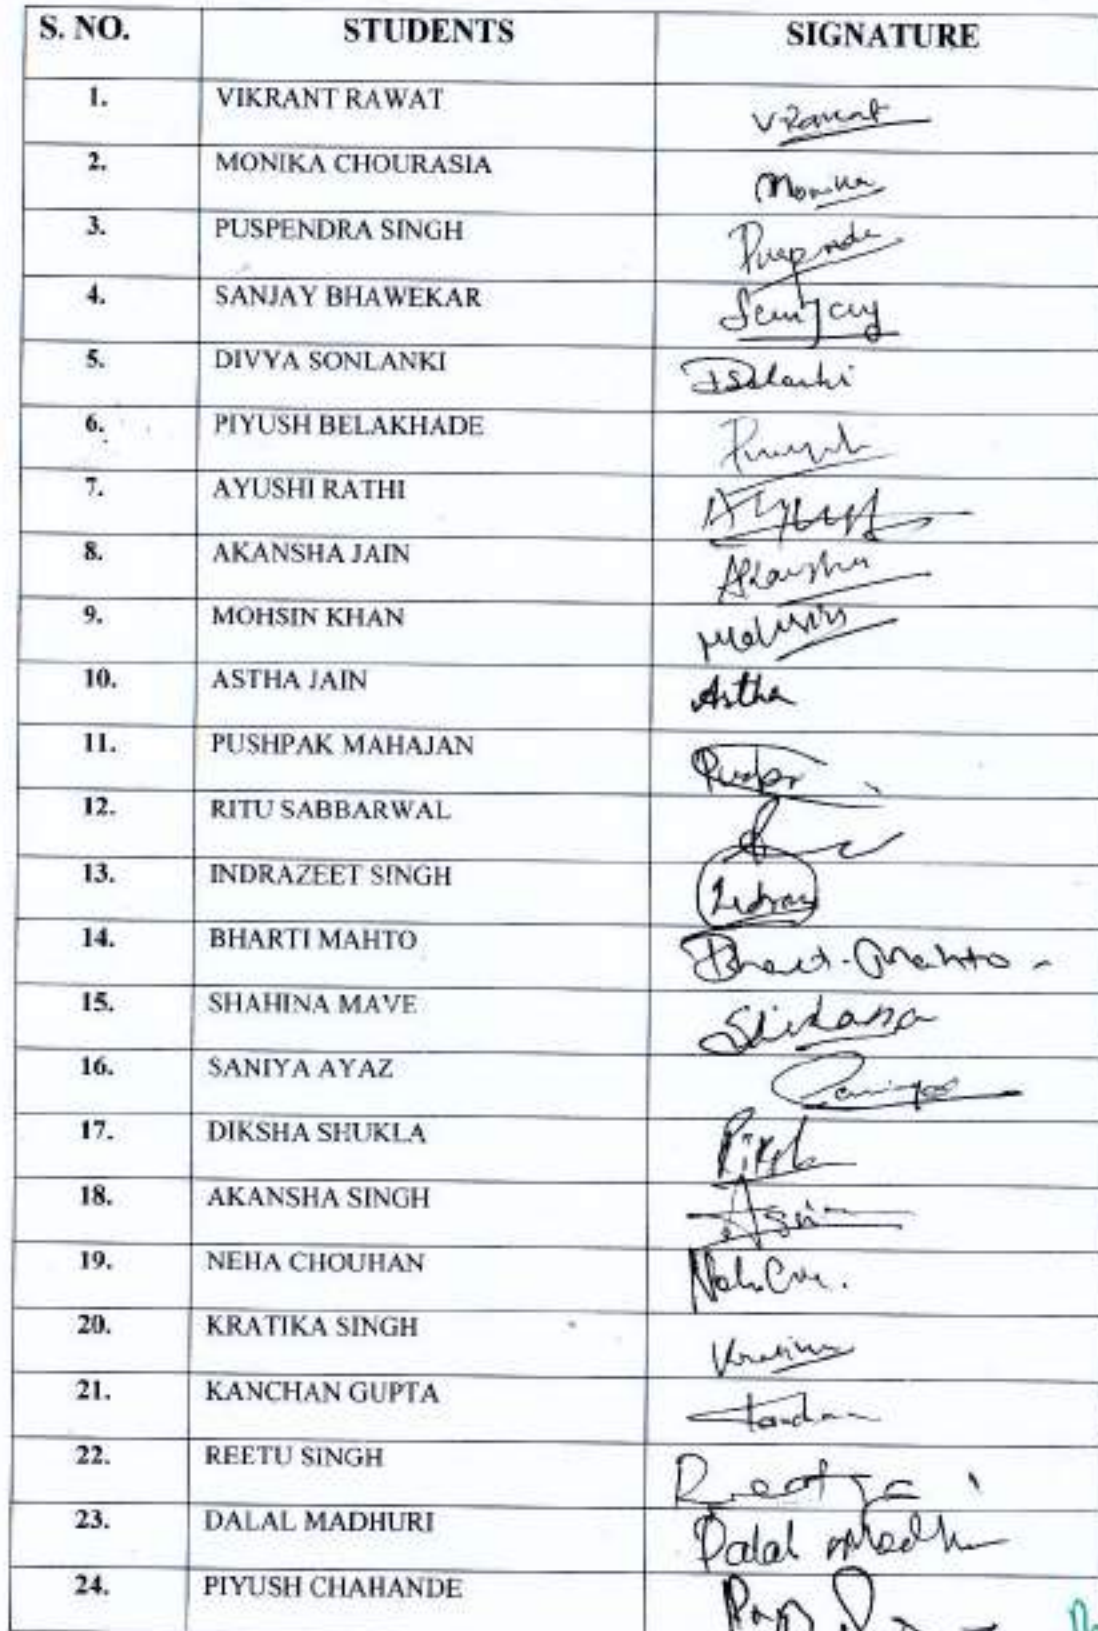 S. NO. STUDENTS SIGNATURE
1. VIKRANT RAWAT VRawat
2. MONIKA CHOURASIA Monika
3. PUSPENDRA SINGH
4. SANJAY BHAWEKAR Sanjay
5. DIVYA SONLANKI DSolanki
6. PIYUSH BELAKHADE
7. AYUSHI RATHI
8. AKANSHA JAIN Akansha
9. MOHSIN KHAN Mohsin
10. ASTHA JAIN Astha
11. PUSHPAK MAHAJAN
12. RITU SABBARWAL
13. INDRAZEET SINGH
14. BHARTI MAHTO Mahto
15. SHAHINA MAVE
16. SANIYA AYAZ
17. DIKSHA SHUKLA
18. AKANSHA SINGH
19. NEHA CHOUHAN
20. KRATIKA SINGH
21. KANCHAN GUPTA
22. REETU SINGH
23. DALAL MADHURI Dalal
24. PIYUSH CHAHANDE